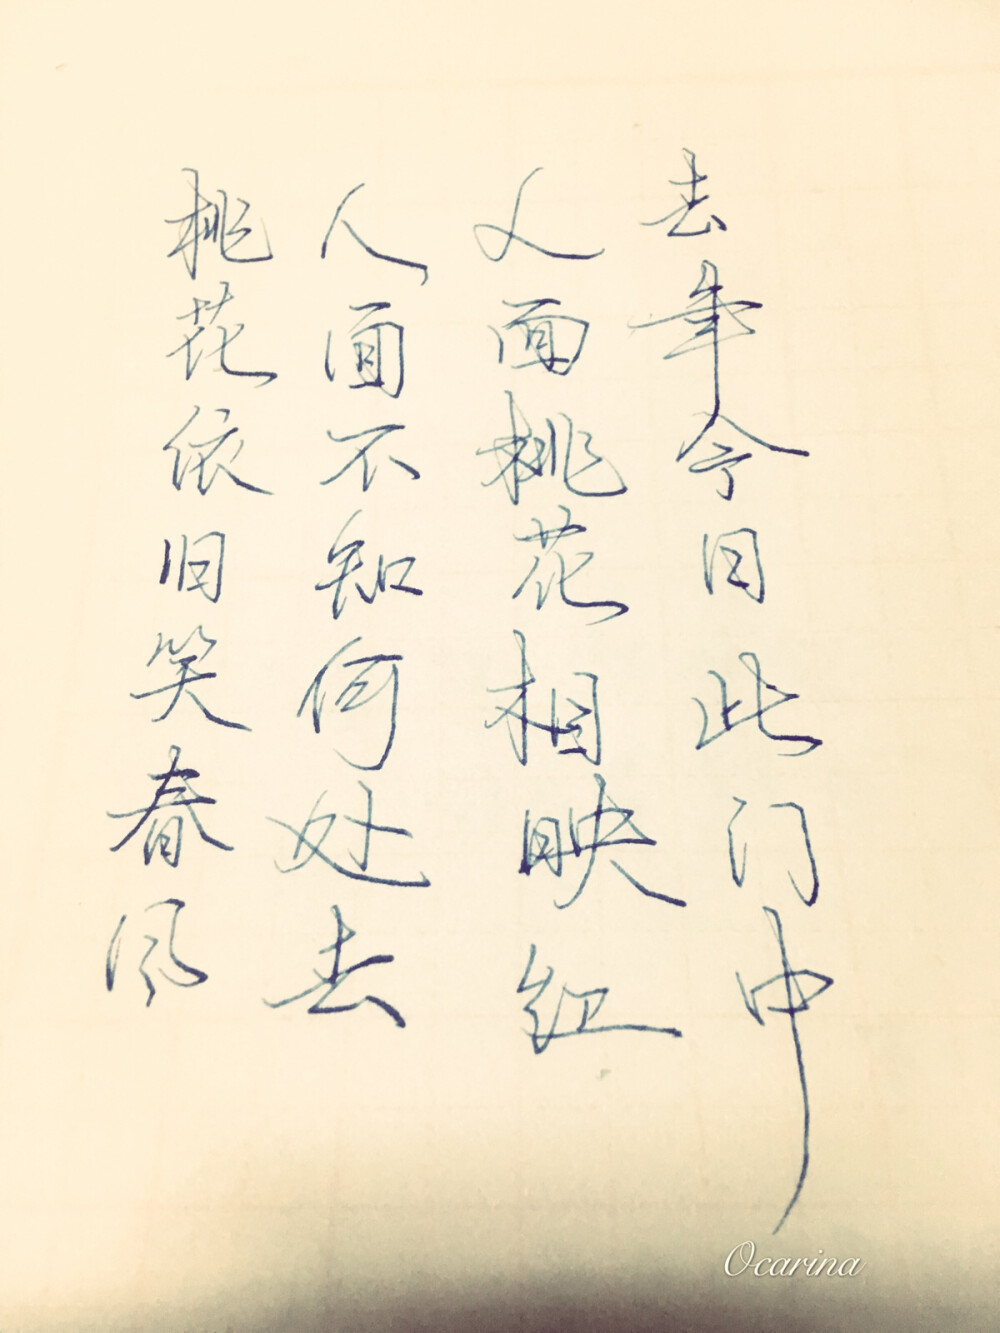 去年今日此门中
人面桃花相映红
人面不知何处去
桃花依旧笑春风
Ocarina